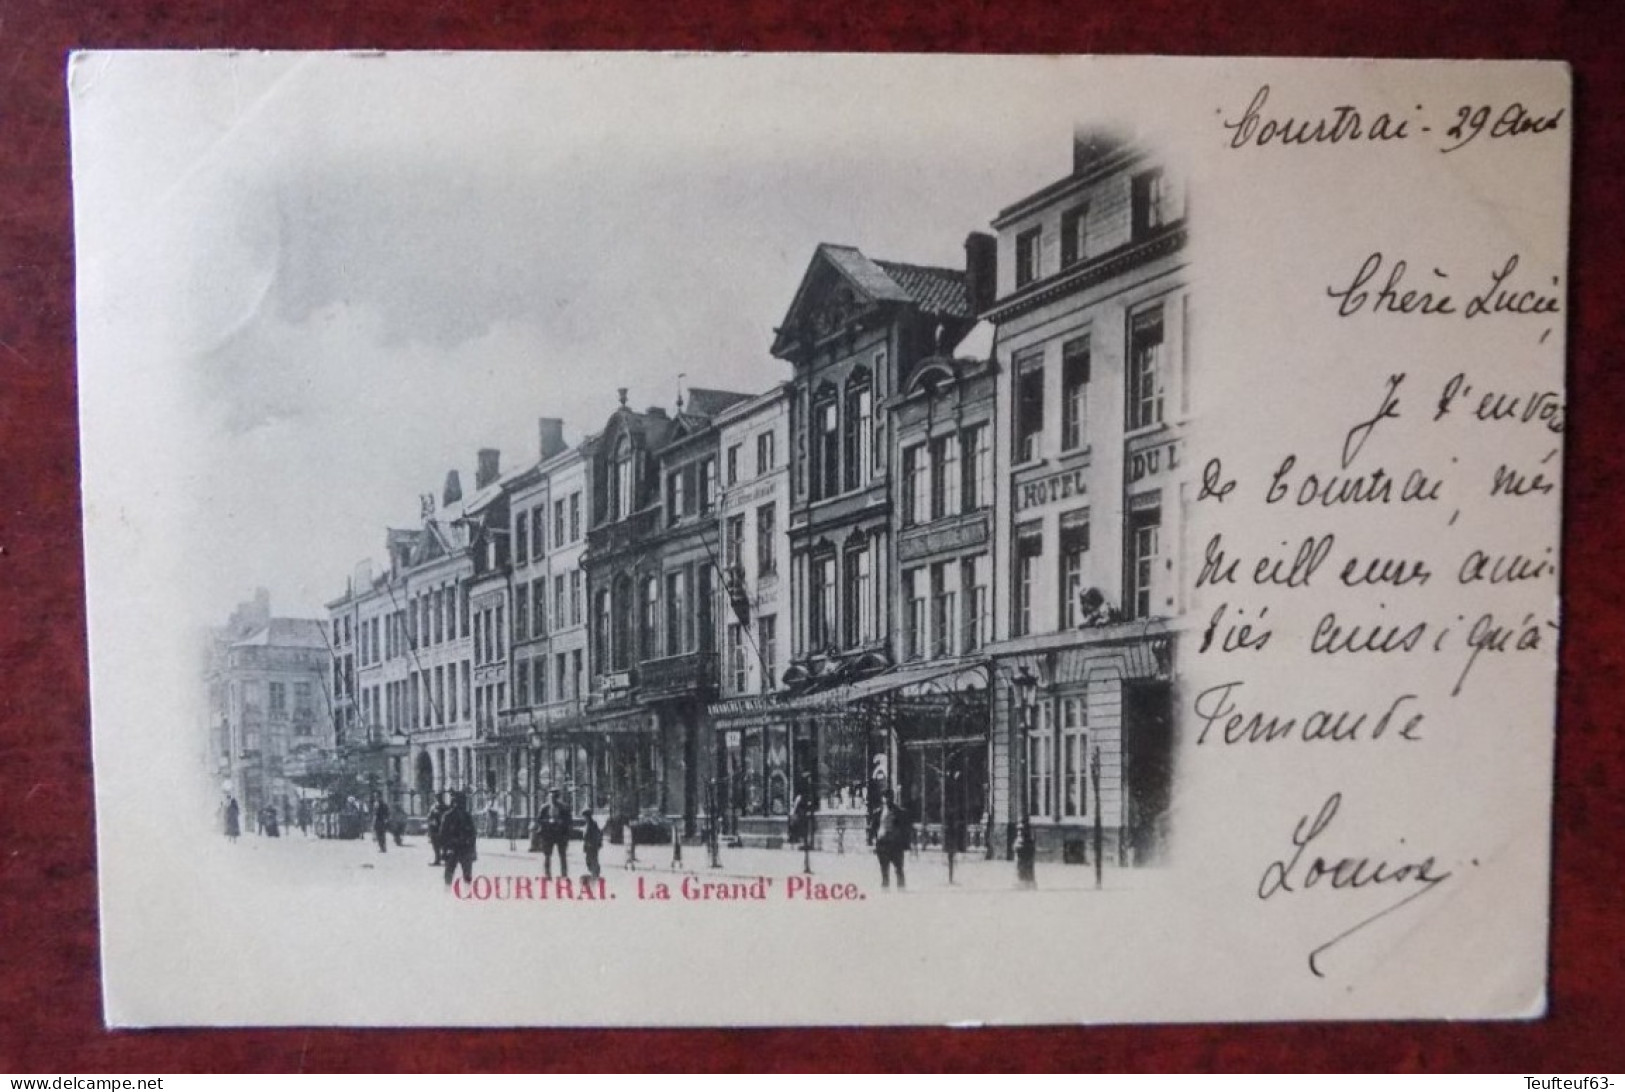 Courtrai - 29 Aout
Chère Lucie,
Je t'envoie
de Courtrai, mes
meilleures ami-
tiés ainsi qu'à
Fernande
Louise.
HOTEL DU L
COURTRAI. La Grand' Place.
Teufteuf63-